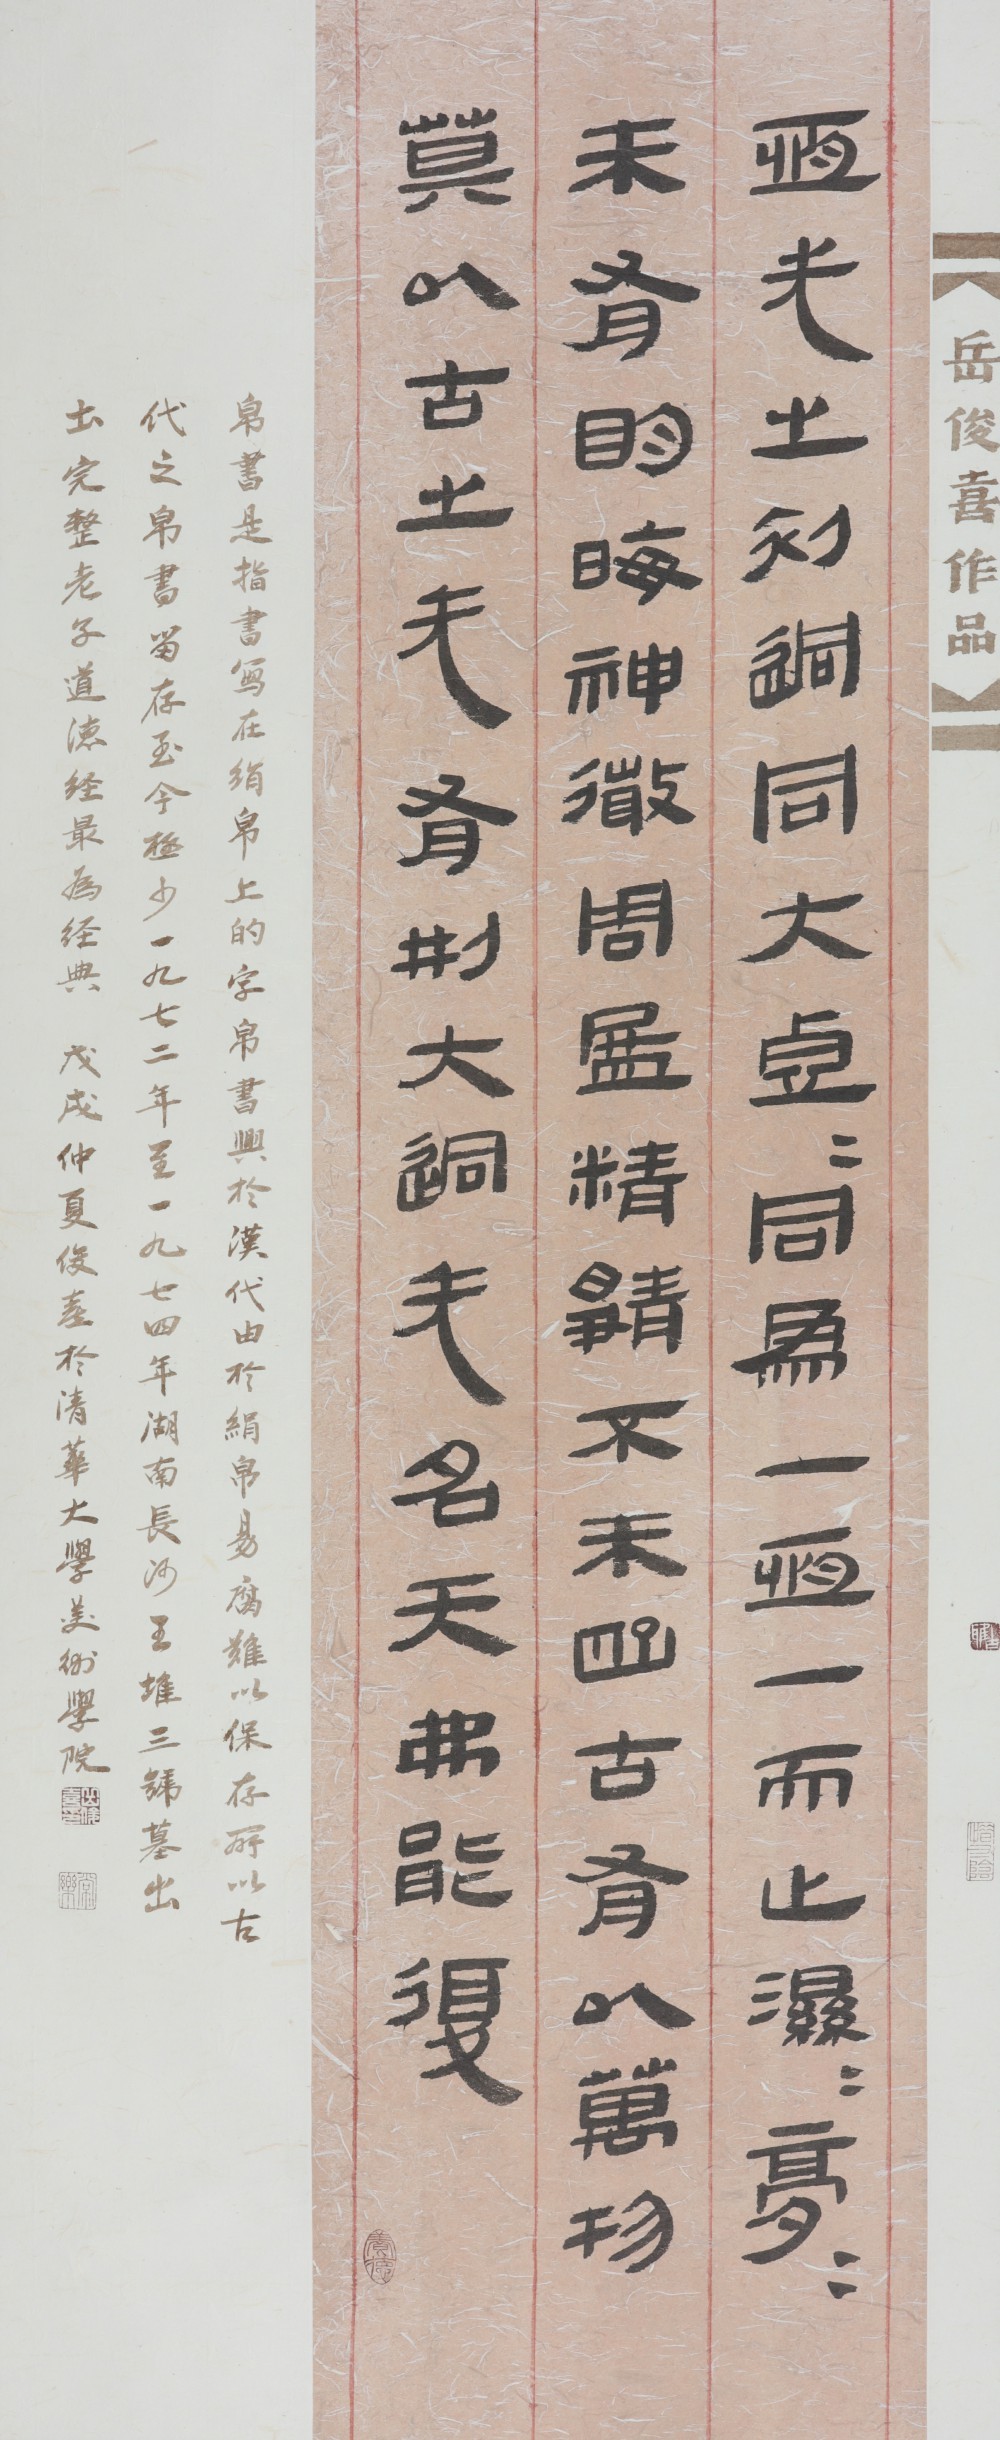 岳俊喜作品
恆无之初迵同大虛〻同為一恆一而止濕〻夢〻
未有明晦神微周盈精靜不未巸古有以萬物
莫以古之无有刑大迵无名天弗能復
帛書是指書寫在絹帛上的字帛書興於漢代由於絹帛易腐難以保存所以古
代之帛書留存至今極少一九七二年至一九七四年湖南長沙王堆三號墓出
土完整老子道德经最為经典 戊戌仲夏俊喜於清華大學美術學院